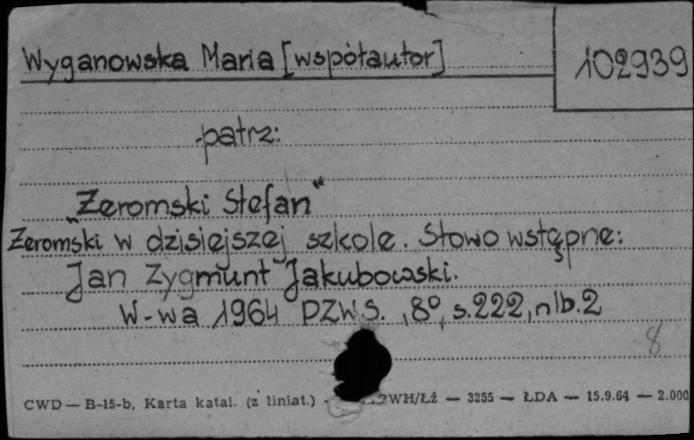 Wyganowska Maria [współautor]
102939
patrz:
"Żeromski Stefan"
Żeromski w dzisiejszej szkole. Słowo wstępne:
Jan Zygmunt Jakubowski.
W-wa 1964 PZWS. , 8°, s. 222, nlb. 2
8
CWD — B-15-b, Karta katal. (z liniat.) - WH/Łź — 3255 — ŁDA — 15.9.64 — 2.000